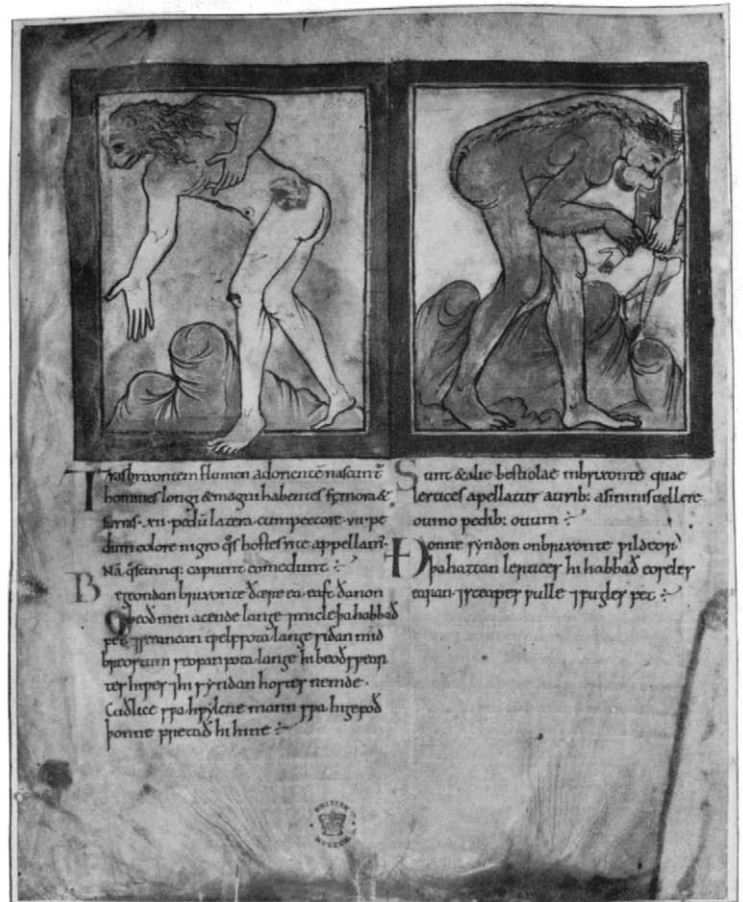 Trasbrixontem flumen adorientē nascunt̄
homines longi & magni habentes femora &
surras .xii. pedū latera cumpectore .vii. pe
dum colore nigro q̄s hostes rite appellam̄.
Nā q̄scunq; capiunt comedunt :~
Begeondan brixonte ðære ea. east ðanon
beoð men acende lange ⁊ micle þa habbað
fet ⁊ sceancan ƿelf fota lange sidan mid
breostum seofan fota lange hi beoð sƿear
tes hiƿes ⁊ hi syndan hostes nemde.
Cuðlice sƿa hƿylcne mann sƿa hi gefoð
þonne fretað hi hine :~
Sunt & alie bestiolae inbrixonte quae
lertices apellatur aurib; asininis uellere
ouino pedib; ouium :~
Ðonne syndon onbrixonte ƿildeor
þa hattan lertices hi habbað eoseles
earan ⁊ sceapes ƿulle ⁊ fugles fet :~
BRITISH
MUSEUM